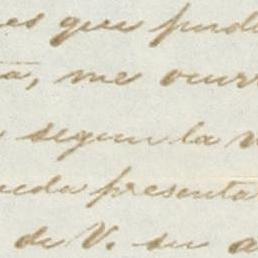 es que pud
a, me ocurr
segun la v
ueda presenta
de V. su a